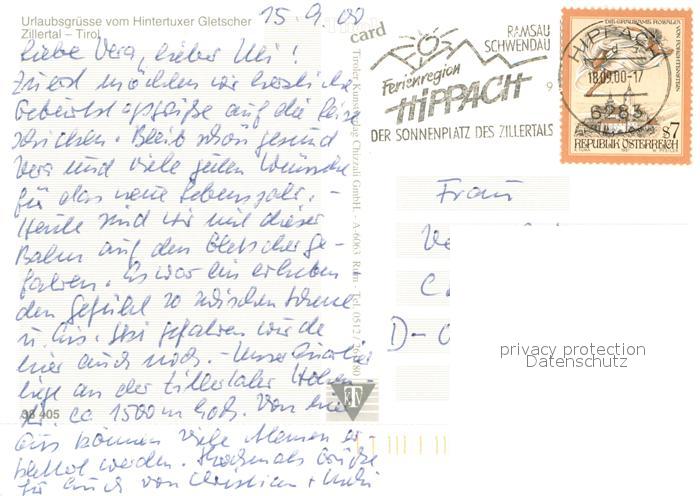 Urlaubsgrüsse vom Hintertuxer Gletscher
Zillertal – Tirol
15.9.00
card
Liebe Vera, lieber Uli!
Zuerst möchten wir herzliche
Geburtstagsgrüße auf die Reise
schicken. Bleib schön gesund
Vera und viele guten Wünsche
für das neue Lebensjahr. –
Heute sind wir mit dieser
Bahn auf den Gletscher ge-
fahren. Es war ein erheben
des Gefühl so zwischen Schnee
u. Eis. Ski gefahren wurde
hier auch noch. – Unser Quartier
liegt an der Zillertaler Höhen
str. ca 1500 m hoch. Von hier
aus können viele Almen er-
wandert werden. Nochmals Grüße
für Euch von Christian +
38 405
Tiroler Kunstverlag Chizzali GmbH. - A-6063 Rum - Tel. 0512/
RAMSAU
SCHWENDAU
Ferienregion
HIPPACH
DER SONNENPLATZ DES ZILLERTALS
HIPPACH
18.09.00-17
6283
S7
REPUBLIK ÖSTERREICH
Frau
Ve
D-
privacy protection
Datenschutz